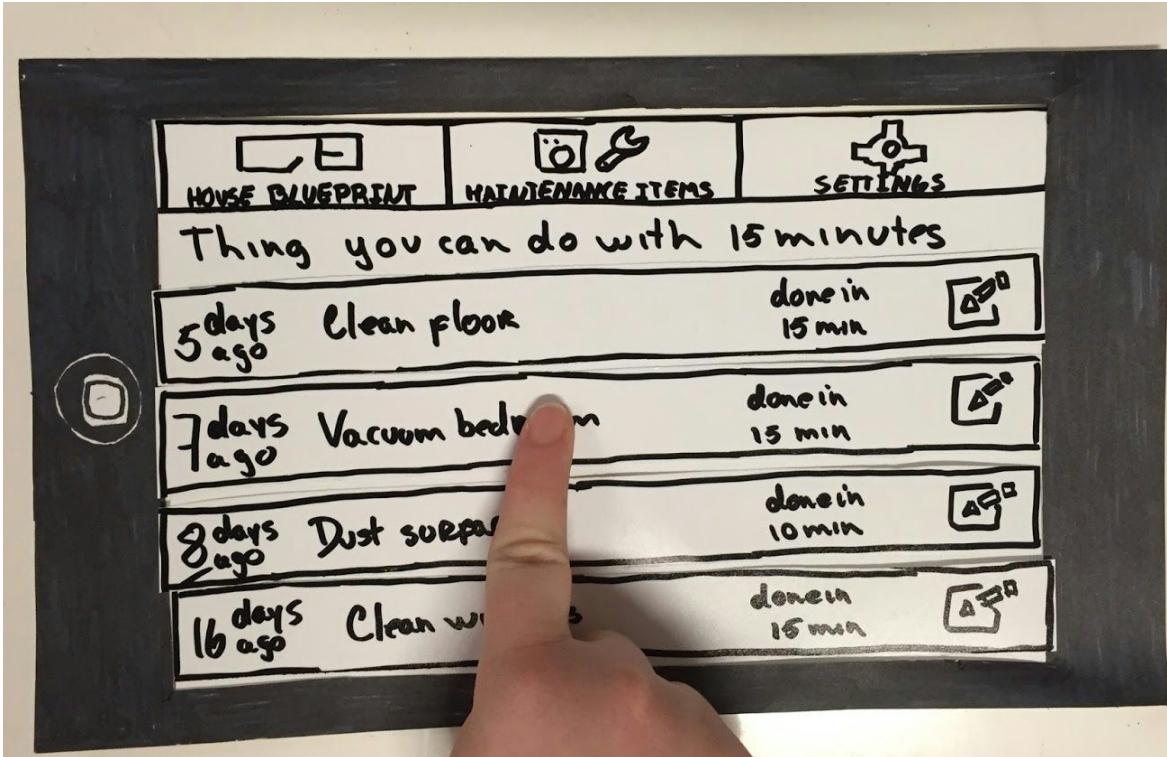 HOUSE BLUEPRINT
MAINTENANCE ITEMS
SETTINGS
Thing you can do with 15 minutes
5 days ago
Clean floor
done in
15 min
7 days ago
Vacuum
done in
15 min
8 days ago
Dust
done in
10 min
16 days ago
Clean
done in
15 min